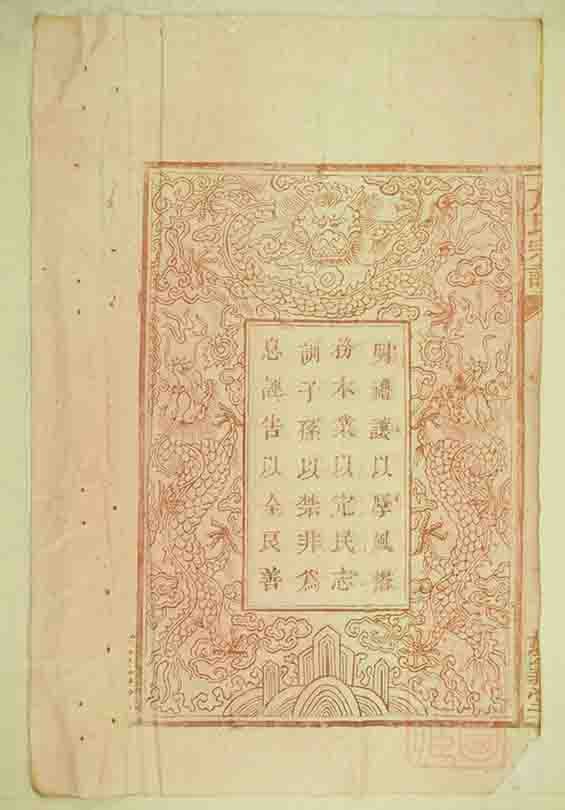 禮讓以厚風俗
務本業以定民志
訓子孫以禁非為
息誣告以全良善
氏宗譜